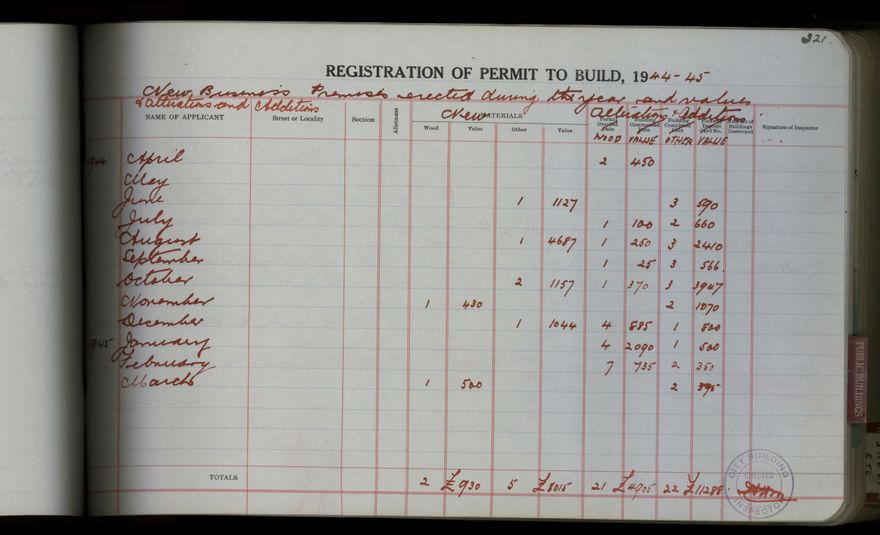 321.
REGISTRATION OF PERMIT TO BUILD, 1944-45
New Business Premises erected during the year and values
& alterations and Additions
New
Alterations & Additions
NAME OF APPLICANT Street or Locality Section Allotment MATERIALS Signature of Inspector
Wood Value Other Value
WOOD VALUE OTHER VALUE
1944 April 2 450
May
June 1 1127 3 590
July 1 100 2 660
August 1 4687 1 250 3 2410
September 1 25 3 566.
October 2 1157 1 370 3 3947
November 1 430 2 1070
December 1 1044 4 885 1 800
1945 January 4 2090 1 500
February 7 735 2 350
March 1 500 2 395
TOTALS 2 £930 5 £8015 21 £4905 22 £11288.
CITY BUILDING
CHECKED
INSPECTOR
PUBLIC BUILDINGS